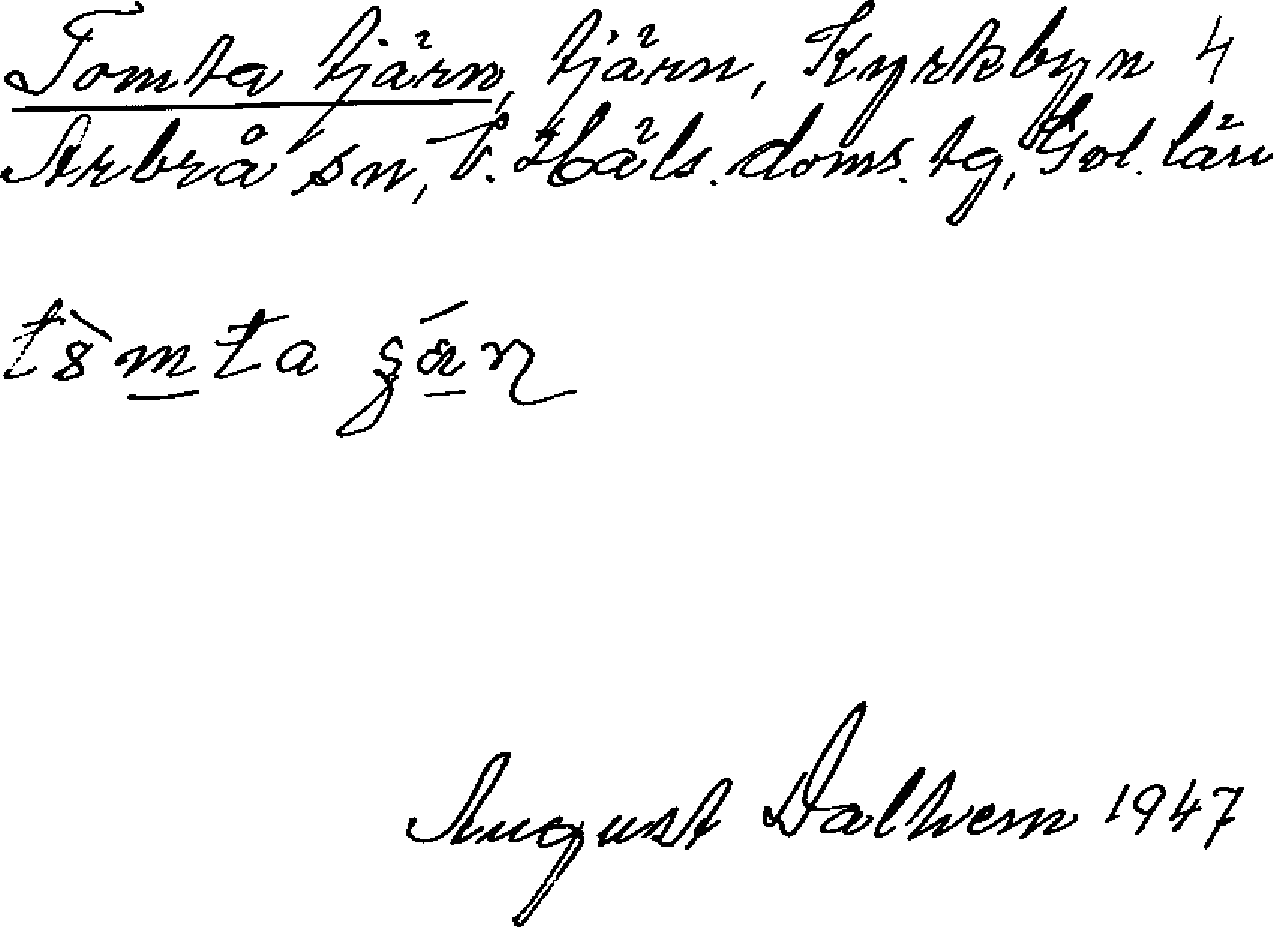 Tomta tjärn, tjärn, Kyrkbyn 4
Arbrå sn, V. Häls. doms. tg, Gvl. län
August Dalhem 1947